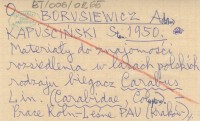 BT/006/0266
BORUSIEWICZ
KAPUŚCIŃSKI S. 1950.
Materiały do znajomości
rozsiedlenia w lasach polskich
rodzaju biegacz Carabus
Lin. (Carabidae, Col.)
Prace Roln.-Leśne PAU (Kraków),